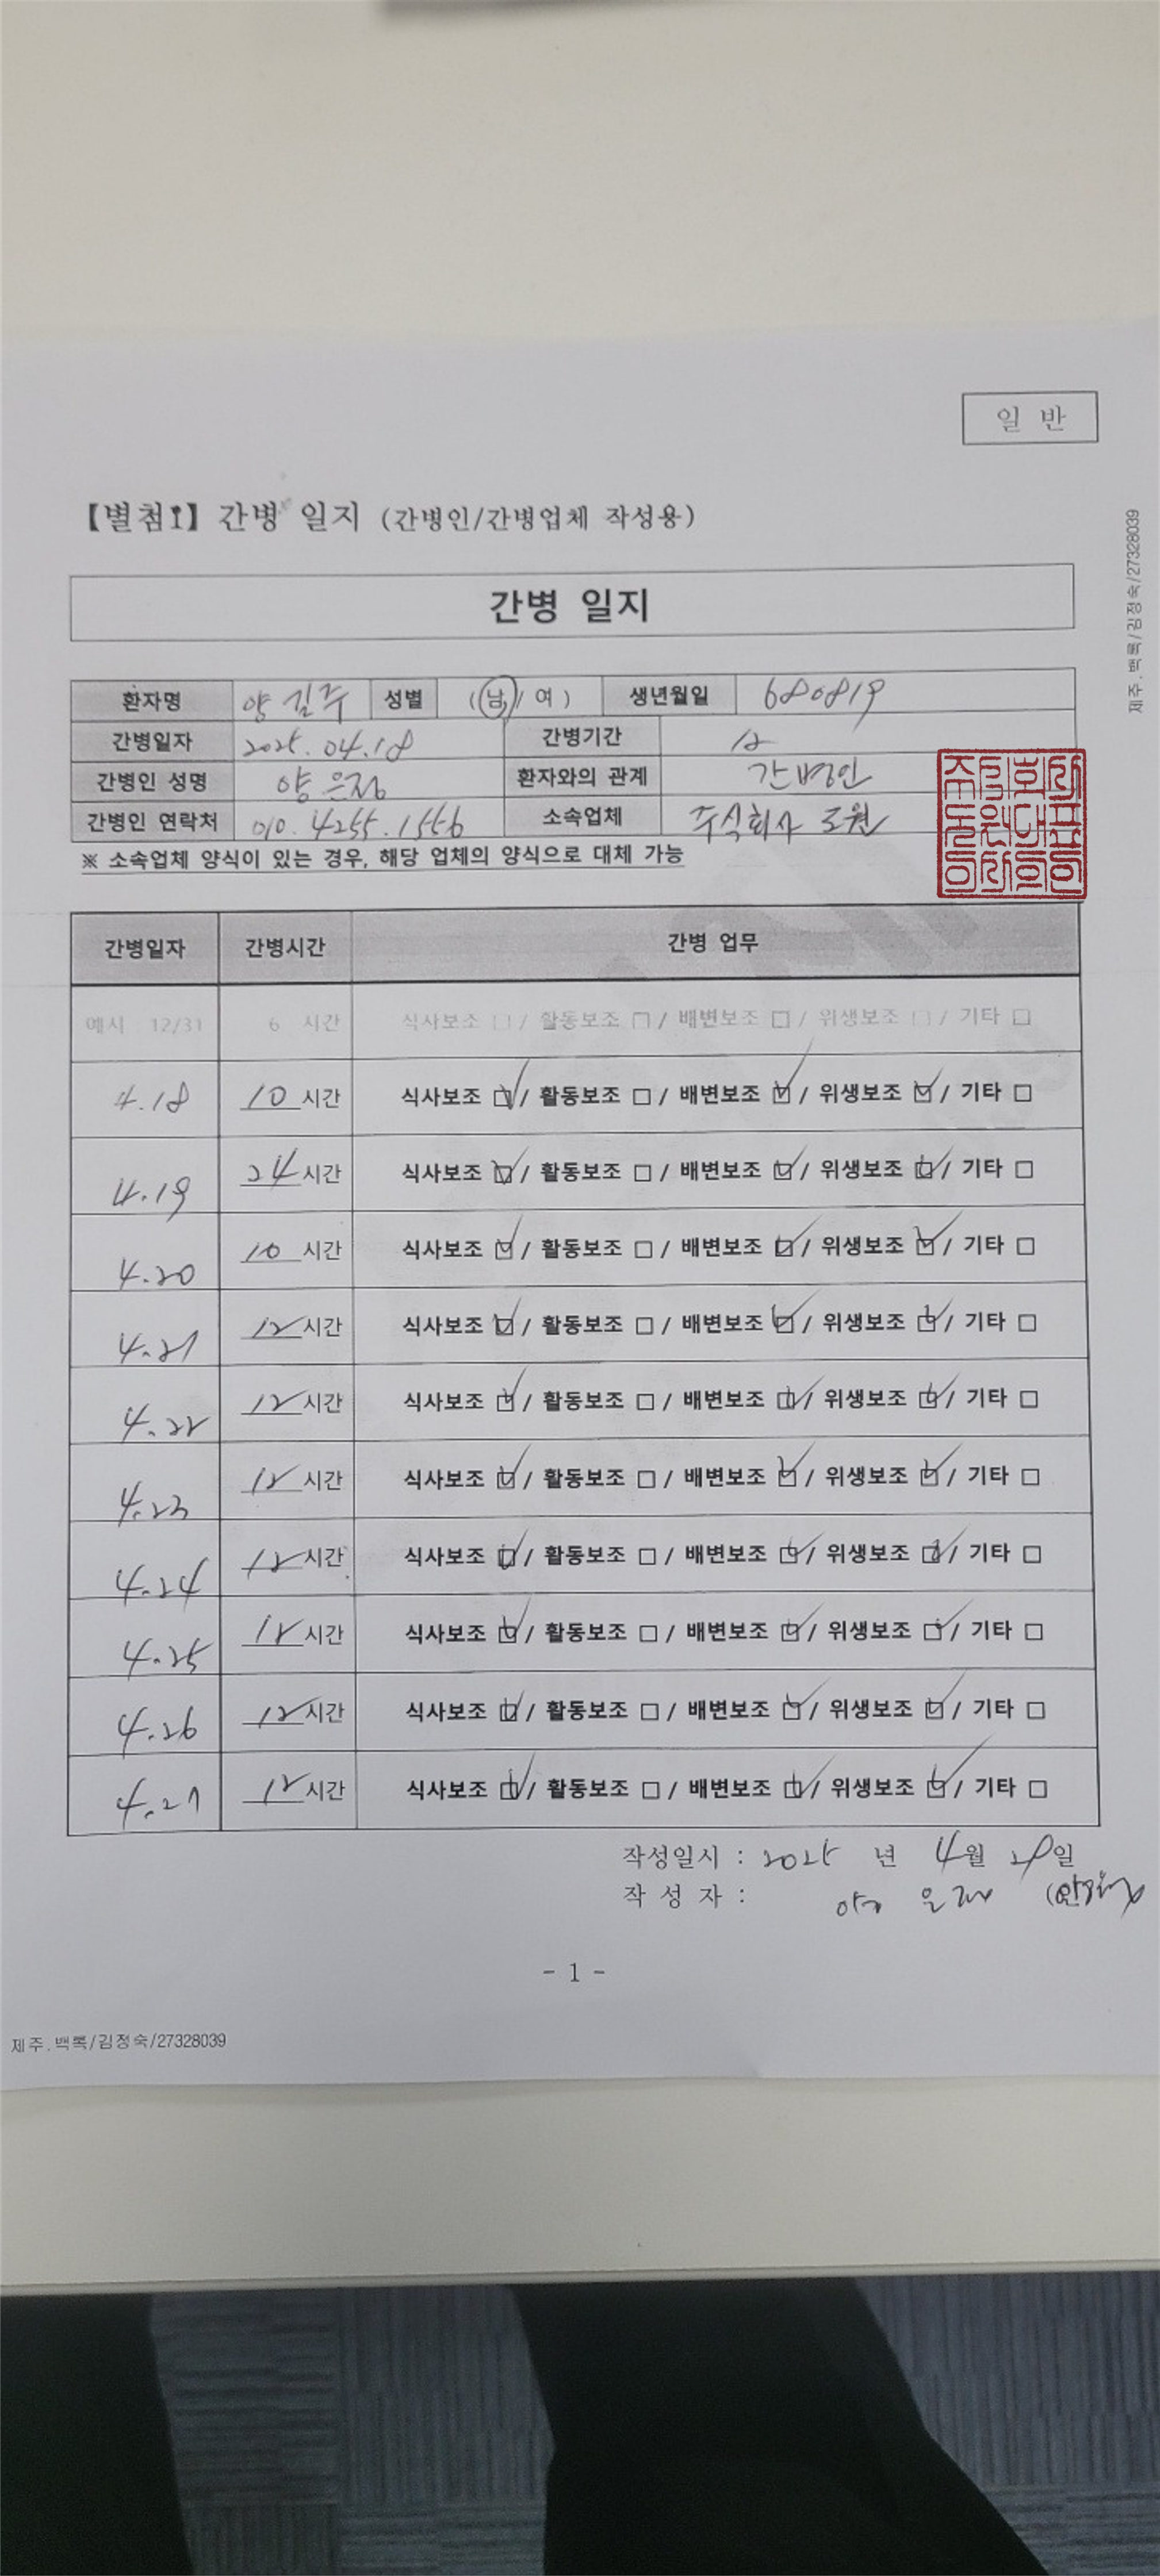 일 반
【별첨1】 간병 일지 (간병인/간병업체 작성용)
간병 일지
환자명 양길주 성별 (남/여) 생년월일 680819
간병일자 2025.04.18 간병기간
간병인 성명 양은정 환자와의 관계 간병인
간병인 연락처 010.4255.1556 소속업체 주식회사 도원
※ 소속업체 양식이 있는 경우, 해당 업체의 양식으로 대체 가능
간병일자 간병시간 간병 업무
예시 : 12/31 6 시간 식사보조 □ / 활동보조 □ / 배변보조 □ / 위생보조 □ / 기타 □
4.18 10 시간 식사보조 ☑ / 활동보조 □ / 배변보조 ☑ / 위생보조 ☑ / 기타 □
4.19 24 시간 식사보조 ☑ / 활동보조 □ / 배변보조 ☑ / 위생보조 ☑ / 기타 □
4.20 10 시간 식사보조 ☑ / 활동보조 □ / 배변보조 ☑ / 위생보조 ☑ / 기타 □
4.21 12 시간 식사보조 ☑ / 활동보조 □ / 배변보조 ☑ / 위생보조 ☑ / 기타 □
4.22 12 시간 식사보조 ☑ / 활동보조 □ / 배변보조 ☑ / 위생보조 ☑ / 기타 □
4.23 12 시간 식사보조 ☑ / 활동보조 □ / 배변보조 ☑ / 위생보조 ☑ / 기타 □
4.24 12 시간 식사보조 ☑ / 활동보조 □ / 배변보조 ☑ / 위생보조 ☑ / 기타 □
4.25 12 시간 식사보조 ☑ / 활동보조 □ / 배변보조 ☑ / 위생보조 ☑ / 기타 □
4.26 12 시간 식사보조 ☑ / 활동보조 □ / 배변보조 ☑ / 위생보조 ☑ / 기타 □
4.27 12 시간 식사보조 ☑ / 활동보조 □ / 배변보조 ☑ / 위생보조 ☑ / 기타 □
작성일시 : 2025 년 4월 28일
작 성 자 :
- 1 -
제주.백록/김정숙/27328039
제주.백록/김정숙/27328039